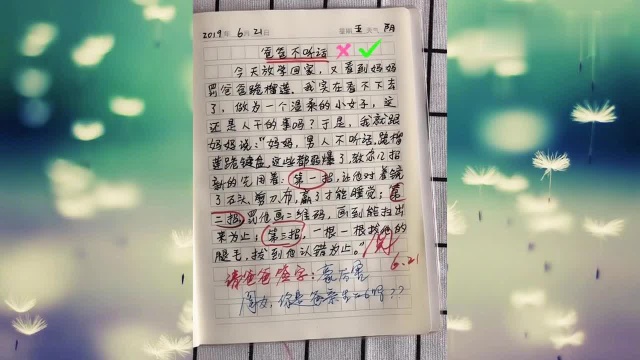 2019年 6月 21日 星期 五 天气 阴
爸爸不听话
今天放学回家,又看到妈妈
罚爸爸跪榴莲。我实在看不下去
了,做为一个温柔的小女子,这
还是人干的事吗?于是,我就跟
妈妈说:“妈妈,男人不听话,跪榴
莲跪键盘,这些都弱爆了,教你几招
新的先用着:第一招,让他对着镜
子石头、剪刀、布,赢了才能睡觉;第
二招,罚他画二维码,画到能扫出
来为止;第三招,一根一根拔他的
腿毛,拔到他认错为止。”
6.21
请爸爸签字:
闺女,你是爸亲生的吗??